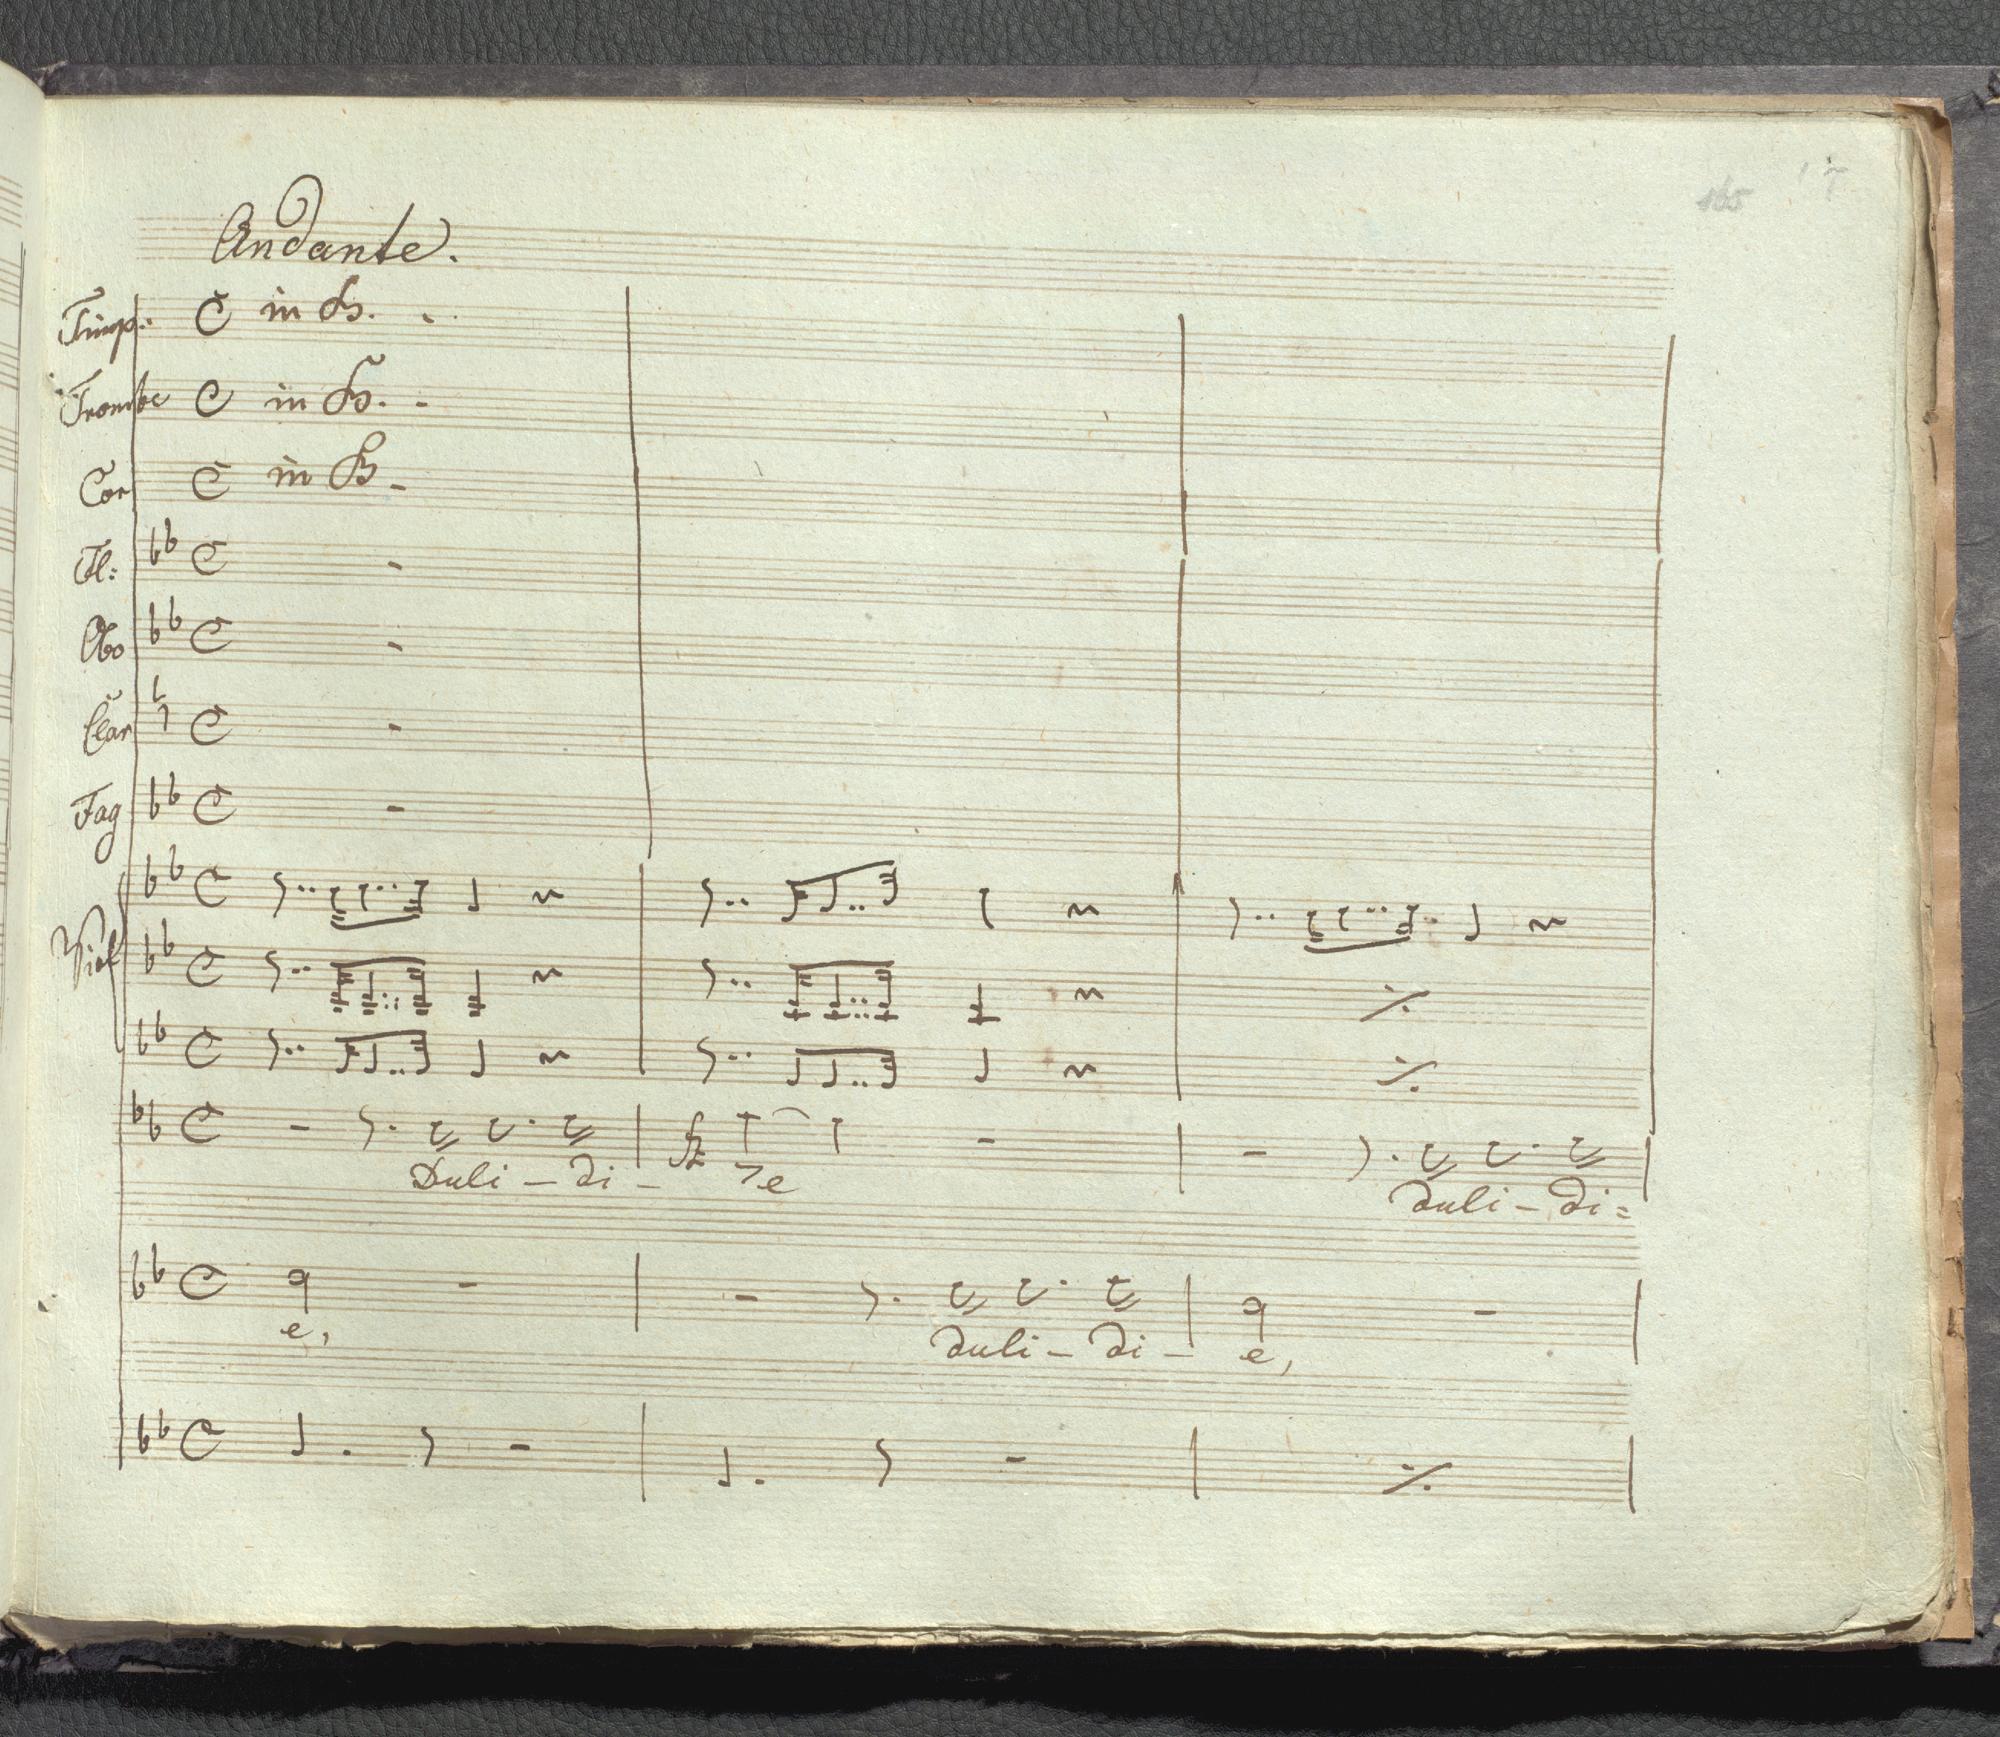 165
Andante.
Timp: in B.
Trombe in B.
Cor in B
Fl:
Obo
Clar
Fag
Viol
fz
Duli - di - e duli - di =
e, duli - di - e,